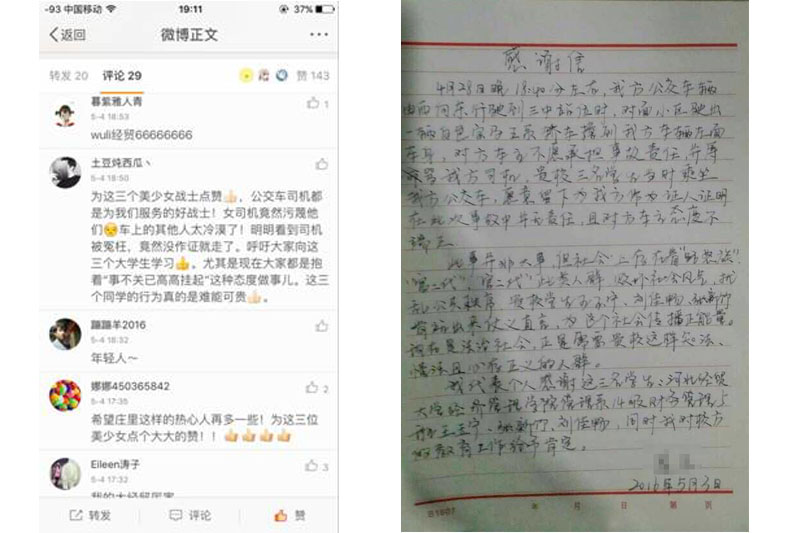 -93 中国移动
19:11
37%
返回
微博正文
转发 20 评论 29 赞 143
暮紫雅人青
5-4 18:53
1
wuli经贸66666666
土豆炖西瓜丶
5-4 18:50
为这三个美少女战士点赞👍，公交车司机都
是为我们服务的好战士！女司机竟然污蔑他
们😒车上的其他人太冷漠了！明明看到司机
被冤枉，竟然没作证就走了。呼吁大家向这
三个大学生学习👍。尤其是现在大家都是抱
着“事不关已高高挂起”这种态度做事儿。这三
个同学的行为真的是难能可贵👍。
蹦蹦羊2016
5-4 18:32
年轻人～
娜娜450365842
5-4 17:35
2
希望庄里这样的热心人再多一些！为这三位
美少女点个大大的赞！！👍👍👍👍
Eileen涛子
5-4 17:32
3
转发 评论 赞
感谢信
4月28日晚 18:40分左右，我方公交车辆
由西向东行驶到三中站位时，对面小区驶出
一辆白色宝马五系轿车撞到我方车辆左面
车身，对方车主不愿承担事故责任，并辱
我方司机，贵校三名学生当时乘坐
我方公交车，愿意留下为我方作为证人证明
在此次事故中并无责任，且对方车主态度不
端正。
此事并非大事，但社会上存在着
“官二代”此类人群，败坏社会风气，扰
乱公共秩序，贵校学生王玉宁、刘佳畅、
站出来仗义直言，为这个社会传播正能量。
现在是法治社会，正是需要贵校这样知法、
懂法且心存正义的人群。
我代表个人感谢这三名学生：河北经贸
大学经济管理学院管理系14级财务管理
王玉宁、刘佳畅，同时我对校方
的教育工作给予肯定。
2016年5月3日
年 月 日 第 页